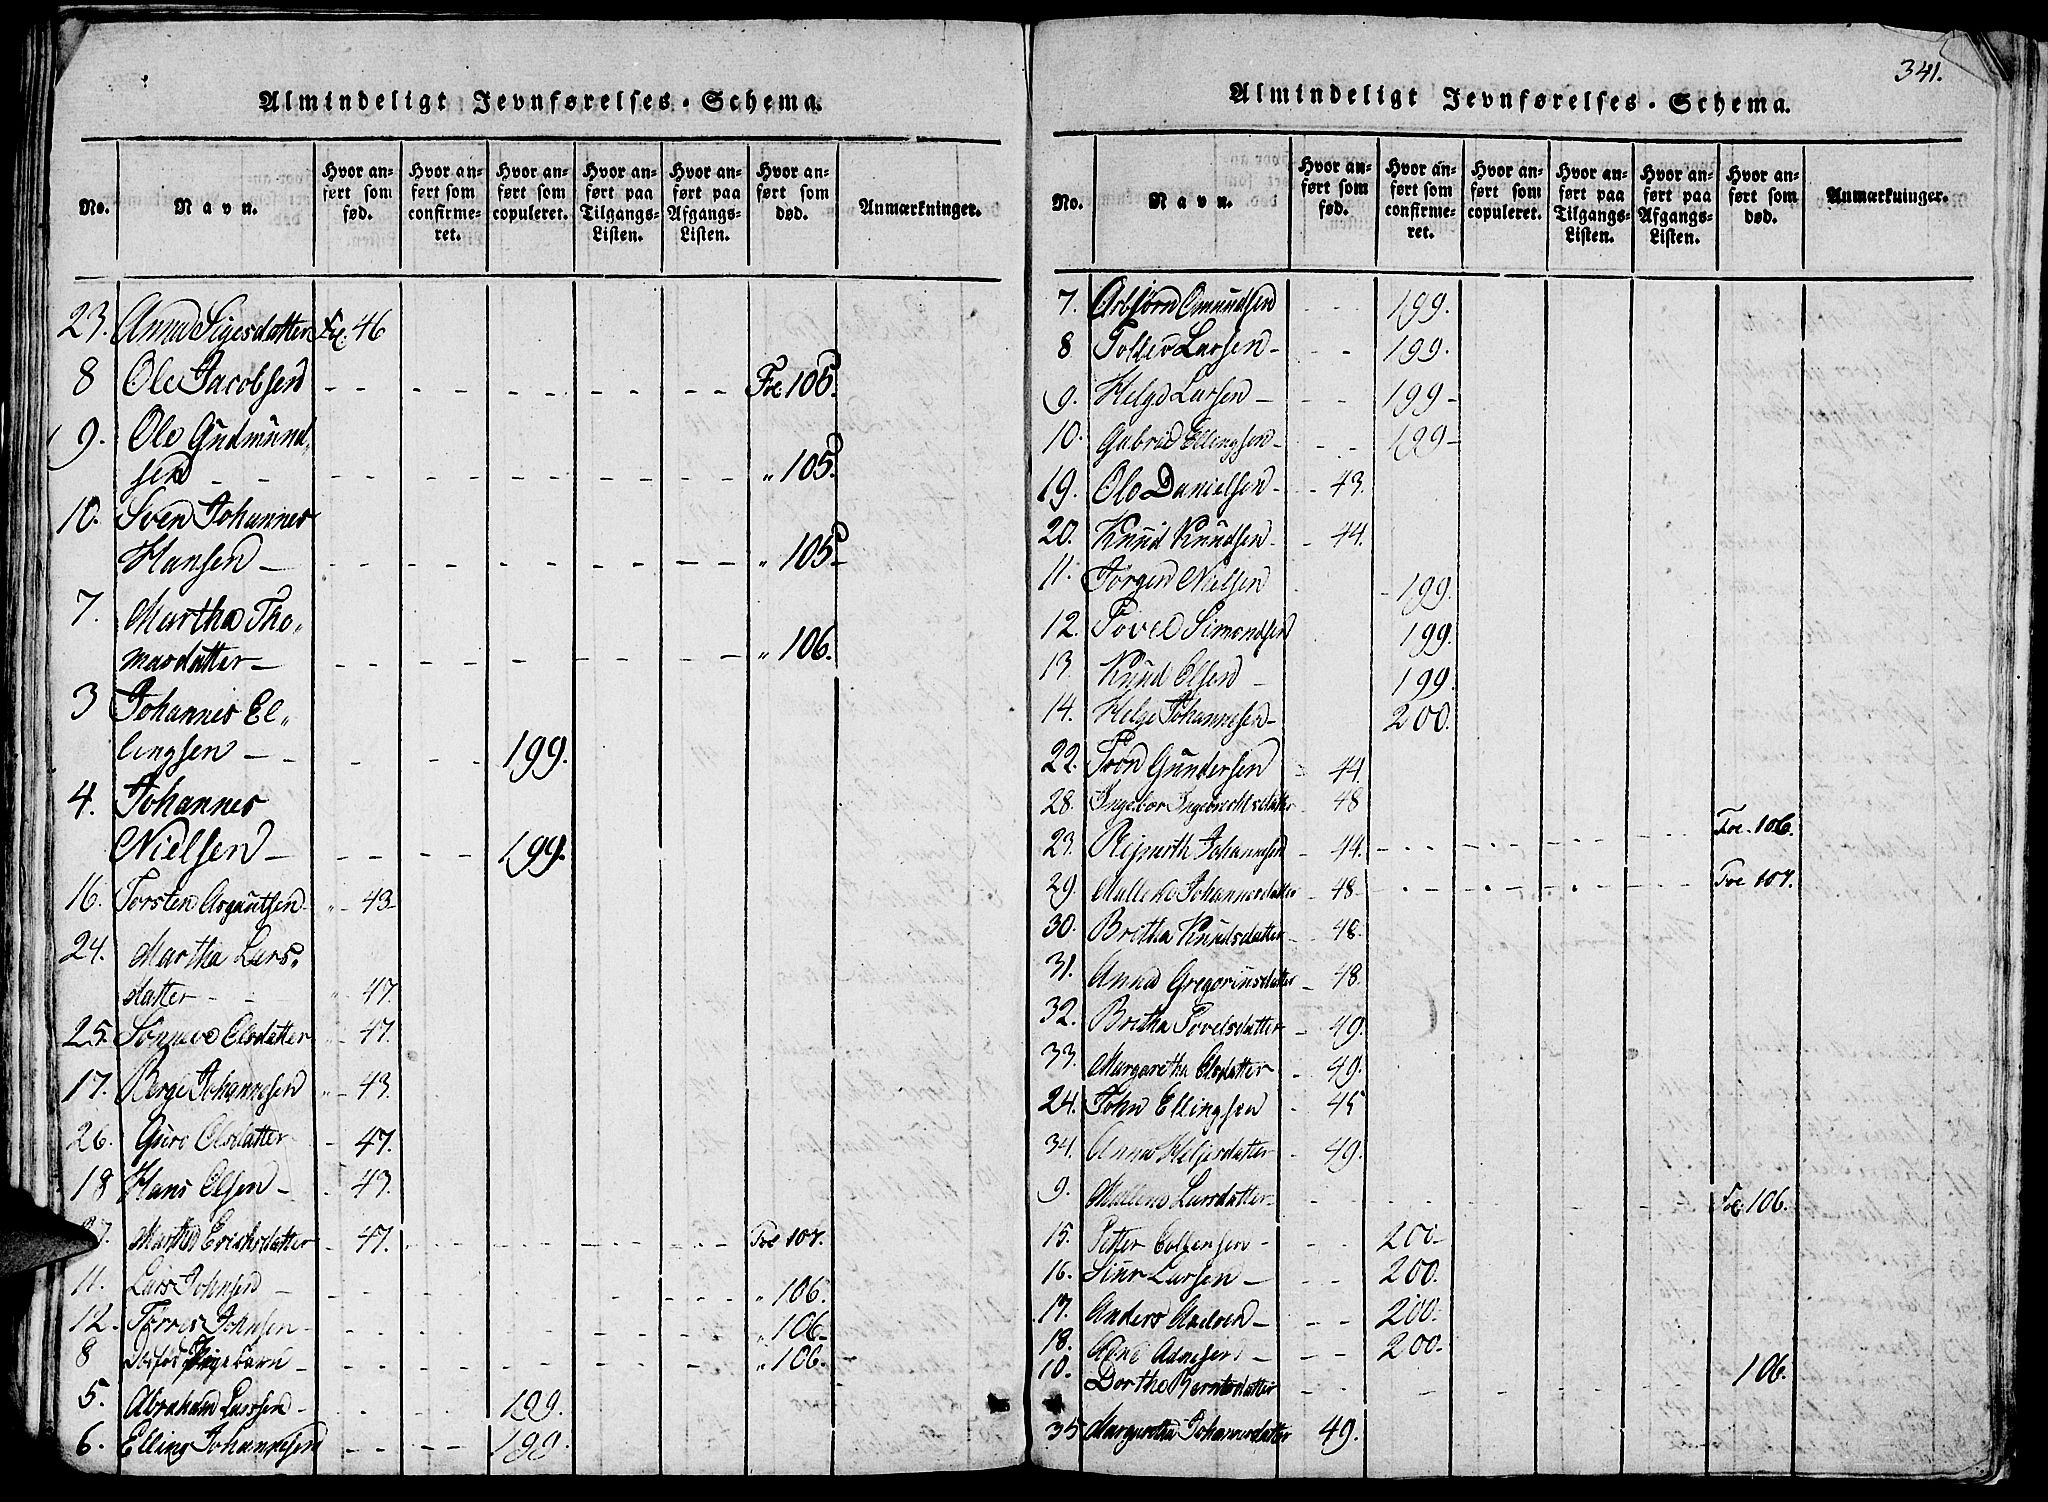 Almindeligt Jevnførelses-Schema.
No. Navn. Hvor anført som fød. Hvor anført som confirmeret. Hvor anført som copuleret. Hvor anført paa Tilgangs-Listen. Hvor anført paa Afgangs-Listen. Hvor anført som død. Anmærkninger.
23. Anna Sigesdatter Fol. 46
8 Ole Jacobsen Fol 105.
9. Ole Gudmund
sen " 105.
10. Sven Johannes
Hansen " 105.
7. Martha Tho„
masdatter " 106.
3 Johannes El„
lingsen 199.
4. Johannes
Nielsen 199.
16. Torsten Asgautsen " 43
24. Martha Lars„
datter " 47.
25. Sønneve Olsdatter " 47.
17. Børge Johannesen " 43.
26. Guro Olsdatter 47.
18 Hans Olsen 43.
27. Martha Erichsdatter 47. Fol 107.
11. Lars Johnsen " 106.
12. Tørres Johnsen " 106.
8 Dødfød Pigebarn " 106.
5. Abraham Larsen 199.
6. Elling Johannesen 199.
341.
Almindeligt Jevnførelses-Schema.
No. Navn. Hvor anført som fød. Hvor anført som confirmeret. Hvor anført som copuleret. Hvor anført paa Tilgangs-Listen. Hvor anført paa Afgangs-Listen. Hvor anført som død. Anmærkninger.
7. Asbjørn Omundsen 199.
8 Tollev Larsen 199.
9. Helge Larsen 199
10. Gabriel Ellingsen 199
19. Ole Danielsen 43.
20. Knud Knudsen 44.
11. Jørgen Nielsen 199.
12. Povel Simonsen 199.
13. Knud Olsen 199.
14. Helge Johannesen 200.
22. Tron Gundersen 44.
28. Ingebor Ingebrechtsdatter 48
23. Johannesen 44. Fol. 106.
29 Mallene Johannesdatter 48 Fol 107.
30. Britha Knudsdatter 48.
31. Anna Gregoriusdatter 48.
32. Britha Povelsdatter 49.
33. Margaretha Olsdatter 49.
24. John Ellingsen 45
34. Anna Helgesdatter 49.
9. Mallene Larsdatter Fol. 106.
15. Petter 200
16. Siur Larsen 200.
17. Anders 200.
18. Adne Adnesen 200.
10. Dorthe Berntsdatter 106.
35 Margaretha Johannesdatter 49.